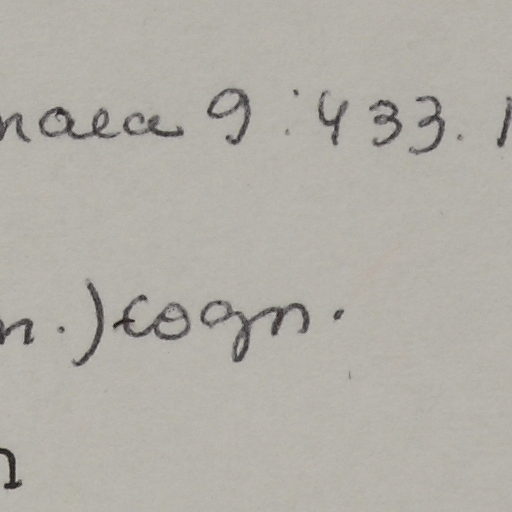 naea 9:433. 1
n.) Cogn.
n